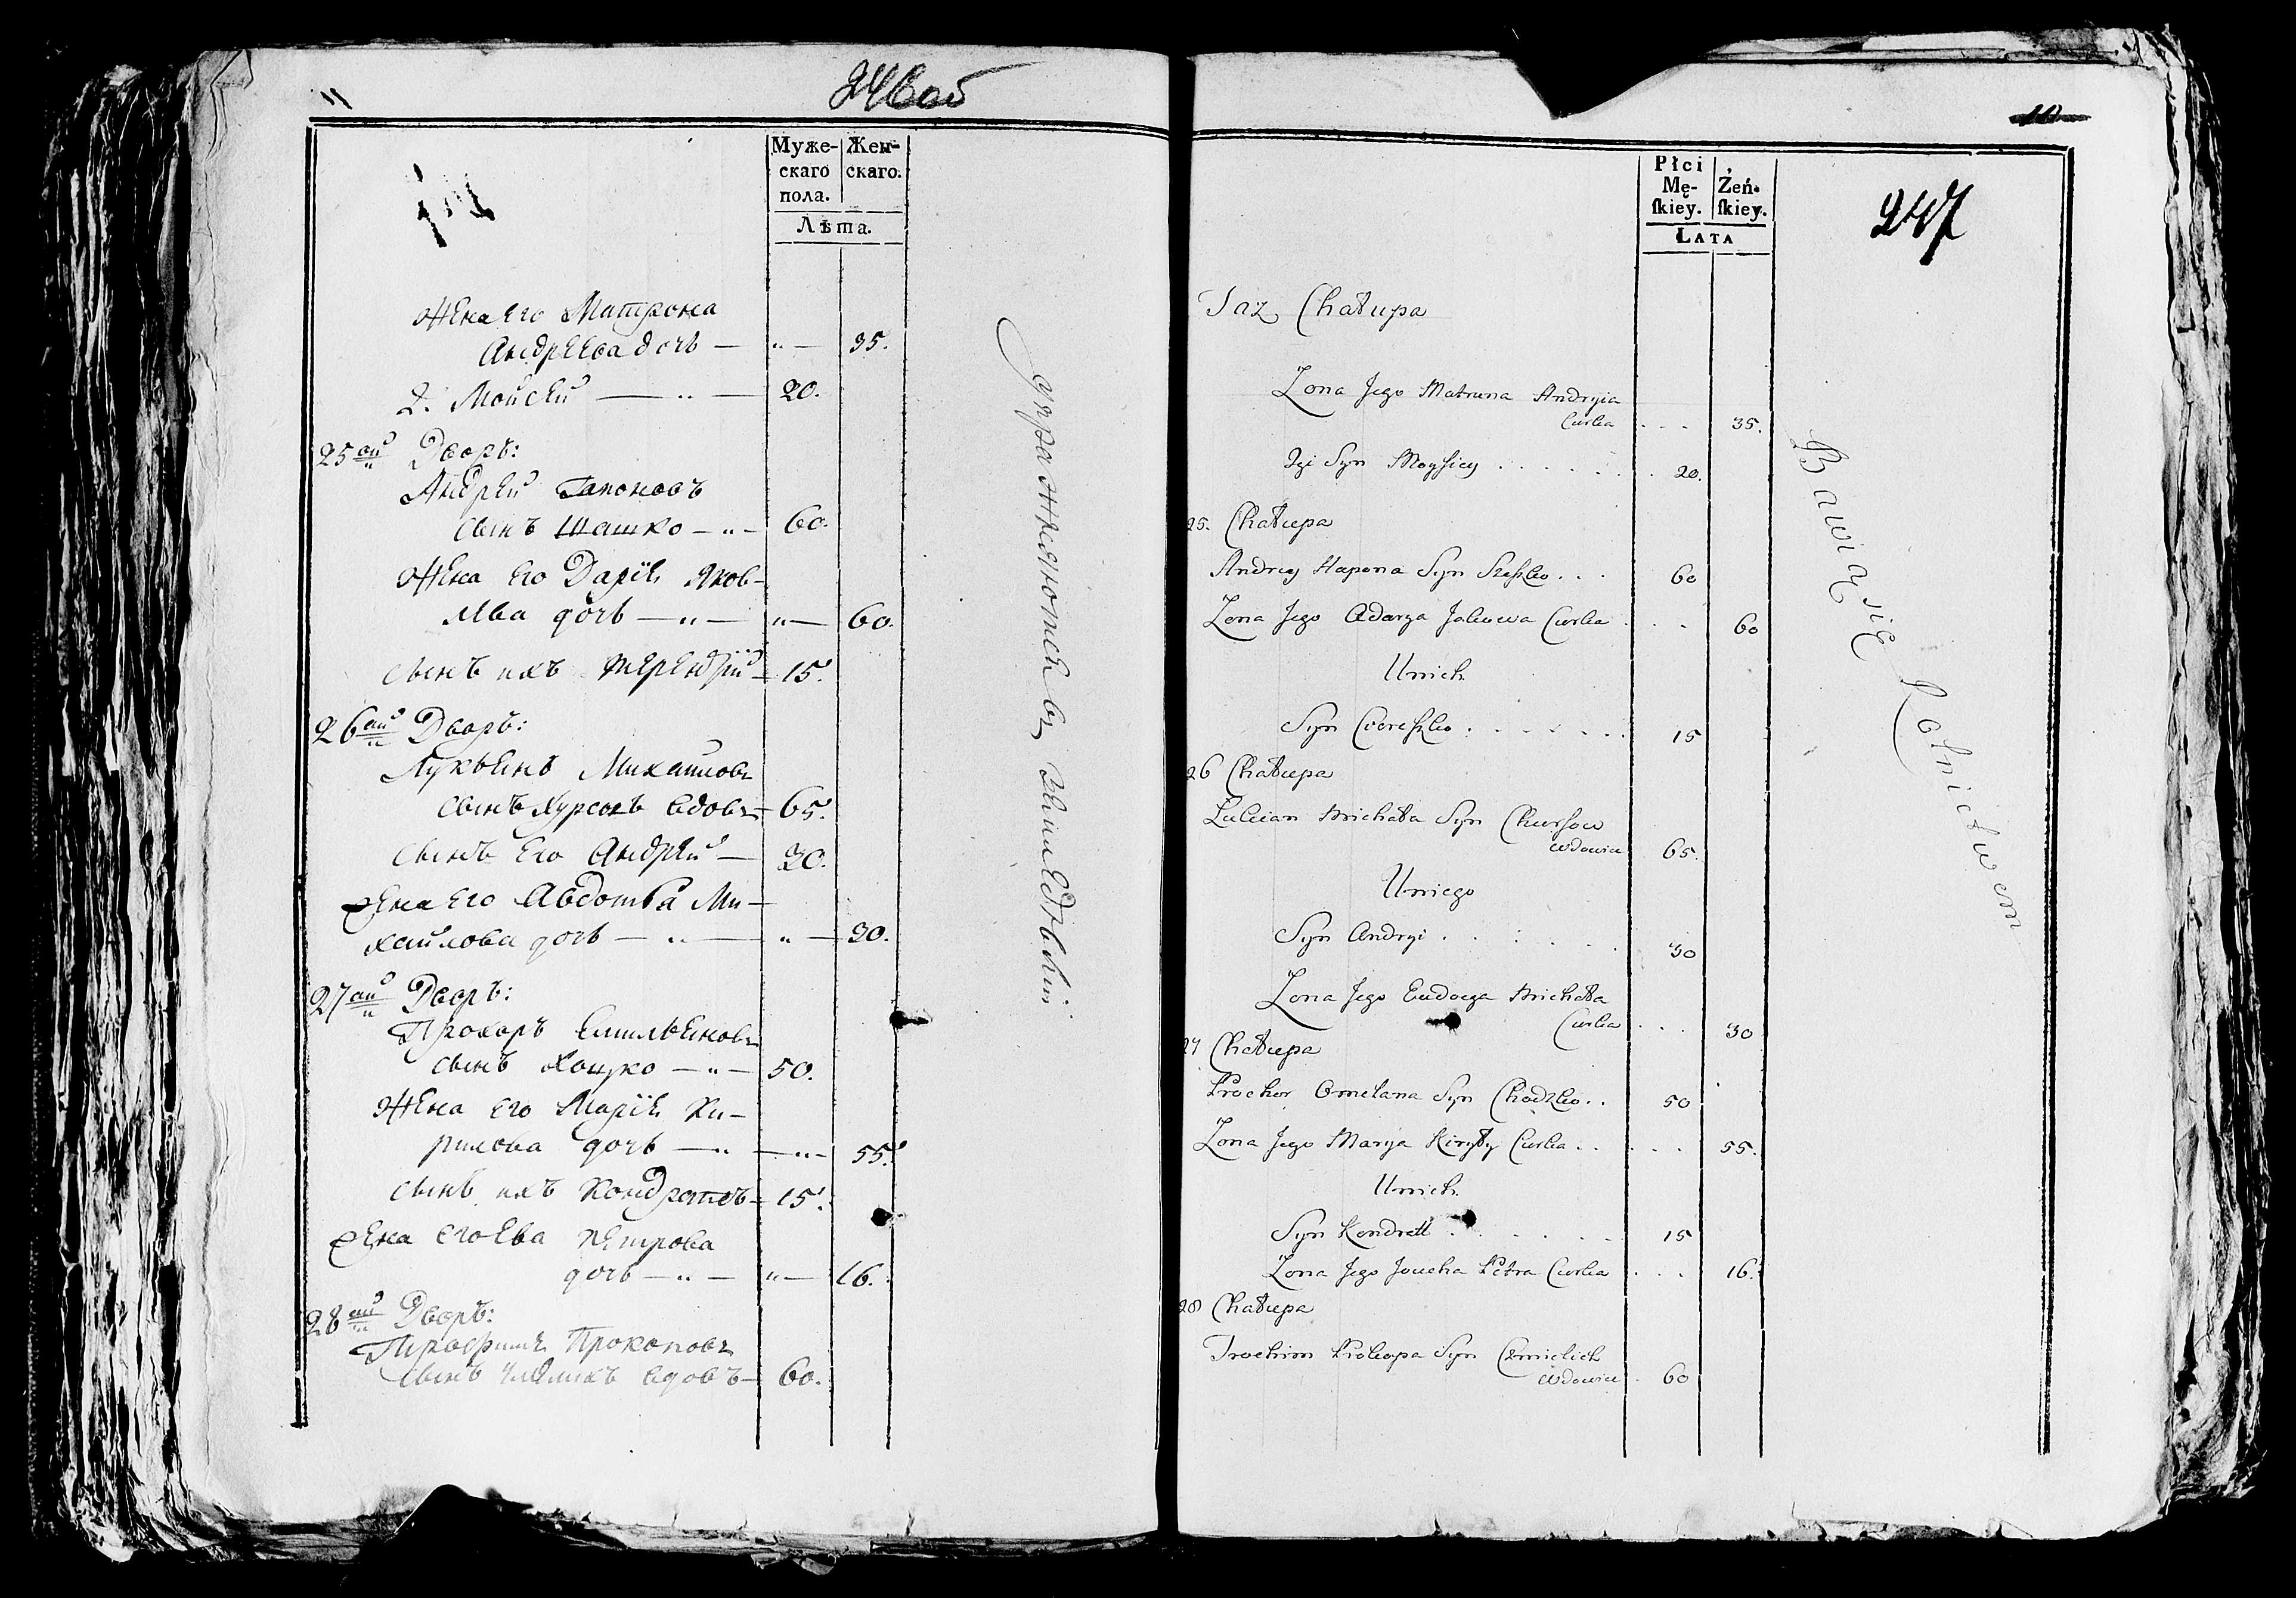 11
246об
Муже-
скаго
пола.
Жен-
скаго.
Лѣта.
Жена его Матрона
Андреева дочь — „ — 35.
2. Мойсей — „ — 20.
25ый Дворъ:
Андрей Гапоновъ
сынъ Шашко — „ — 60.
Жена его Дарія Яков-
лева дочь — „ — „ — 60.
сынъ ихъ Терентій — 15.
26ый Дворъ:
Лукьянъ Михайловъ
сынъ Хурсовъ вдовъ — 65.
сынъ его Андрей — 30.
Жена его Авдотья Ми-
хайлова дочь — „ — „ — 30.
27ый Дворъ:
Прохоръ Емильяновъ
сынъ Хоцко — „ — 50.
Жена его Марія Ки-
рилова дочь — „ — „ — 55.
сынъ ихъ Кондратъ — 15.
Жена его Ева Петрова
дочь — „ — „ — 16.
28ый Дворъ:
Трофимъ Прокоповъ
сынъ вдовъ — 60.
Упражняются въ земледѣліи
10
247
Płci
Mę-
skiey.
Żeń-
skiey.
LATA
Taż Chałupa
Zona Jego Matruna Andryia
Curka . . . 35.
2gi Syn Moysiey . . . . . . 20.
25. Chałupa
Andrey Hapona Syn Szeszko . . . 60
Zona Jego Odarya Jakowa Curka . . . 60
U nich
Syn Cereszko . . . . . . 15
26 Chałupa
Łukian Michała Syn Chursow
wdowiec 65.
U niego
Syn Andryi . . . . . . 30
Zona Jego Eudocya Michała
Curka . . . 30
27 Chałupa
Prochor Omelana Syn Chodzko . . 50
Zona Jego Marya Kiryły Curka . . . . . 55.
U nich
Syn Kondratt . . . . . . 15
Zona Jego Jewcha Petra Curka . . . 16.
28 Chałupa
Trochim Prokopa Syn Chmielich
wdowiec . 60
Bawią się Rolnictwem